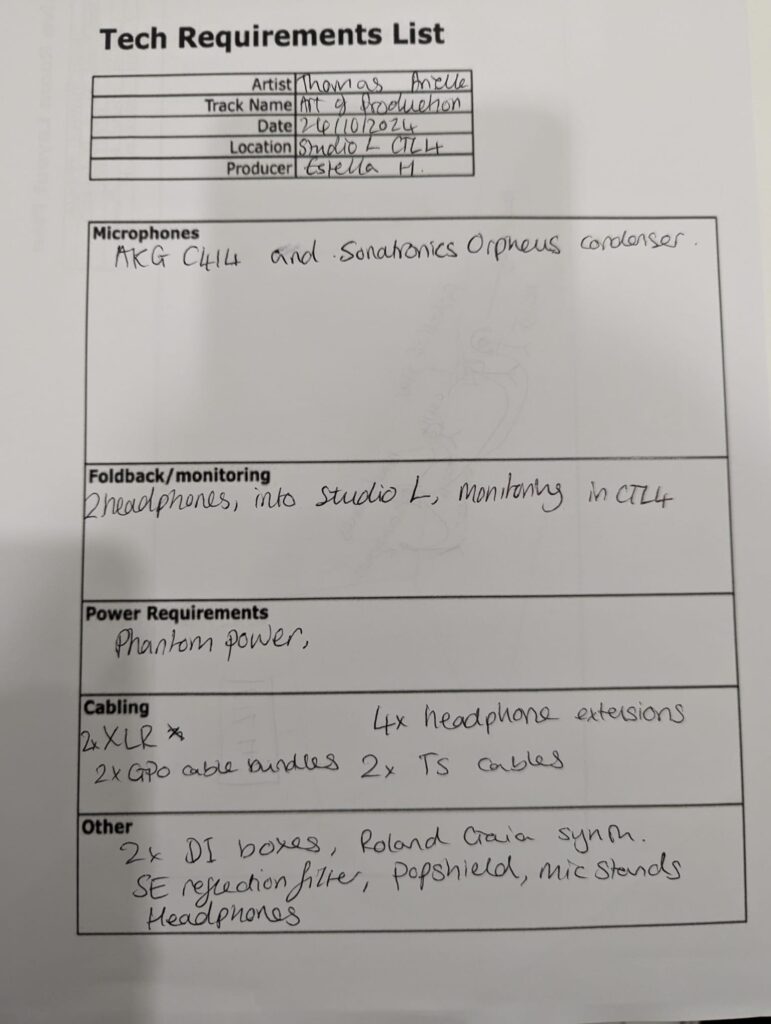 Tech Requirements List
Artist Thomas Arielle
Track Name Art of Production
Date 24/10/2024
Location Studio L CTL4
Producer Estella H.
Microphones
AKG C414 and Sonatronics Orpheus condenser.
Foldback/monitoring
2 headphones, into studio L, monitoring in CTL4
Power Requirements
Phantom power,
Cabling
2x XLR
4x headphone extensions
2x GPO cable bundles 2x TS cables
Other
2x DI boxes, Roland Gaia synth.
SE reflection filter, Popshield, mic stands
Headphones